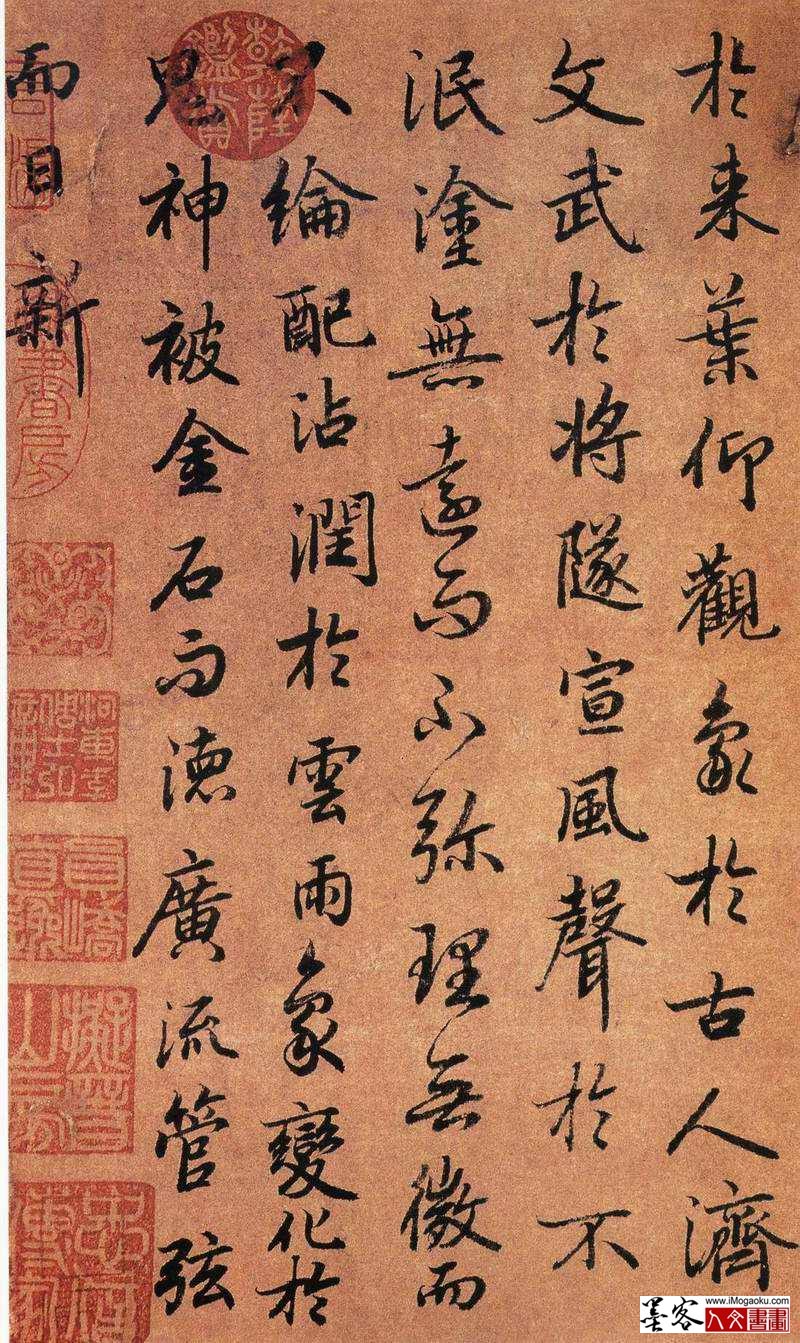 於来葉仰觀象於古人濟
文武於将隧宣風聲於不
泯塗無遠而不弥理無微而
不綸配沾潤於雲雨象變化於
鬼神被金石而徳廣流管弦
而日新
墨客
www.iMogaoku.com
人文書畫